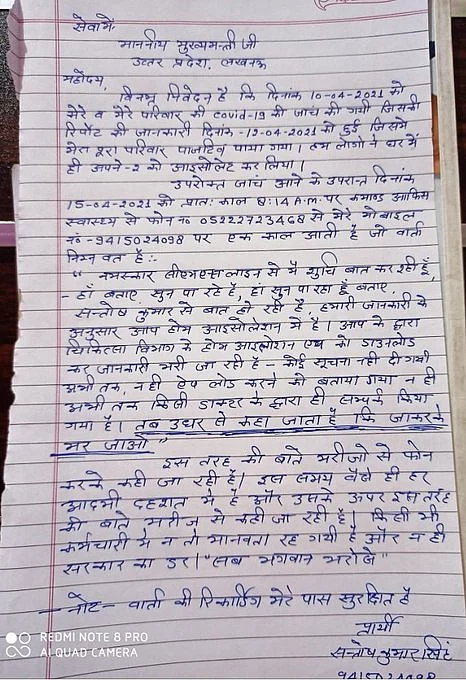 सेवामें
माननीय मुख्यमन्त्री जी
उत्तर प्रदेश, लखनऊ
महोदय,
विनम्र निवेदन है कि दिनांक 10-04-2021 को
मेरे व मेरे परिवार की covid-19 की जांच की गयी जिसकी
रिपोर्ट की जानकारी दिनांक -12-04-2021 को हुई जिसमें
मेरा पूरा परिवार पाजटिव पाया गया। हम लोगो ने घर में
ही अपने-2 को आइसोलेट कर लिया।
उपरोक्त जांच आने के उपरान्त दिनांक
15-04-2021 को प्रातः काल 8:14 A.m. पर कमाण्ड आफिस
स्वास्थ्य से फोन नं० 05222723468 से मेरे मोबाइल
नं० -9415024098 पर एक काल आती है जो वार्ता
निम्न वत है :-
“ नमस्कार सीएमएस लाइन से मैं शुचि बात कर रही हूँ,
- हाँ बताए, सुन पा रहे है, हां सुन पा रहा हूँ बताए,
सन्तोष कुमार से बात हो रही है, हमारी जानकारी के
अनुसार आप होम आइसोलेशन में है। आप के द्वारा
चिकित्सा विभाग के होम आइसोलेशन एप को डाउनलोड
कर जानकारी भरी जा रही है - कोई सूचना नही दी गयी
अभी तक, नही ऐप लोड करने को बताया गया न ही
अभी तक किसी डाक्टर के द्वारा ही सम्पर्क किया
गया है। तब उधर से कहा जाता है कि जाकरके
मर जाओ ”
इस तरह की बाते मरीजो से फोन
करके कही जा रही है। इस समय वैसे ही हर
आदमी दहशत में है और उसके ऊपर इस तरह
की बाते मरीज से कही जा रही है। किसी भी
कर्मचारी में न तो मानवता रह गयी है और न ही
सरकार का डर। “सब भगवान भरोसे”
- नोट - वार्ता की रिकार्डिंग मेरे पास सुरक्षित है
प्रार्थी
सन्तोष कुमार सिंह
9415024098
REDMI NOTE 8 PRO
AI QUAD CAMERA